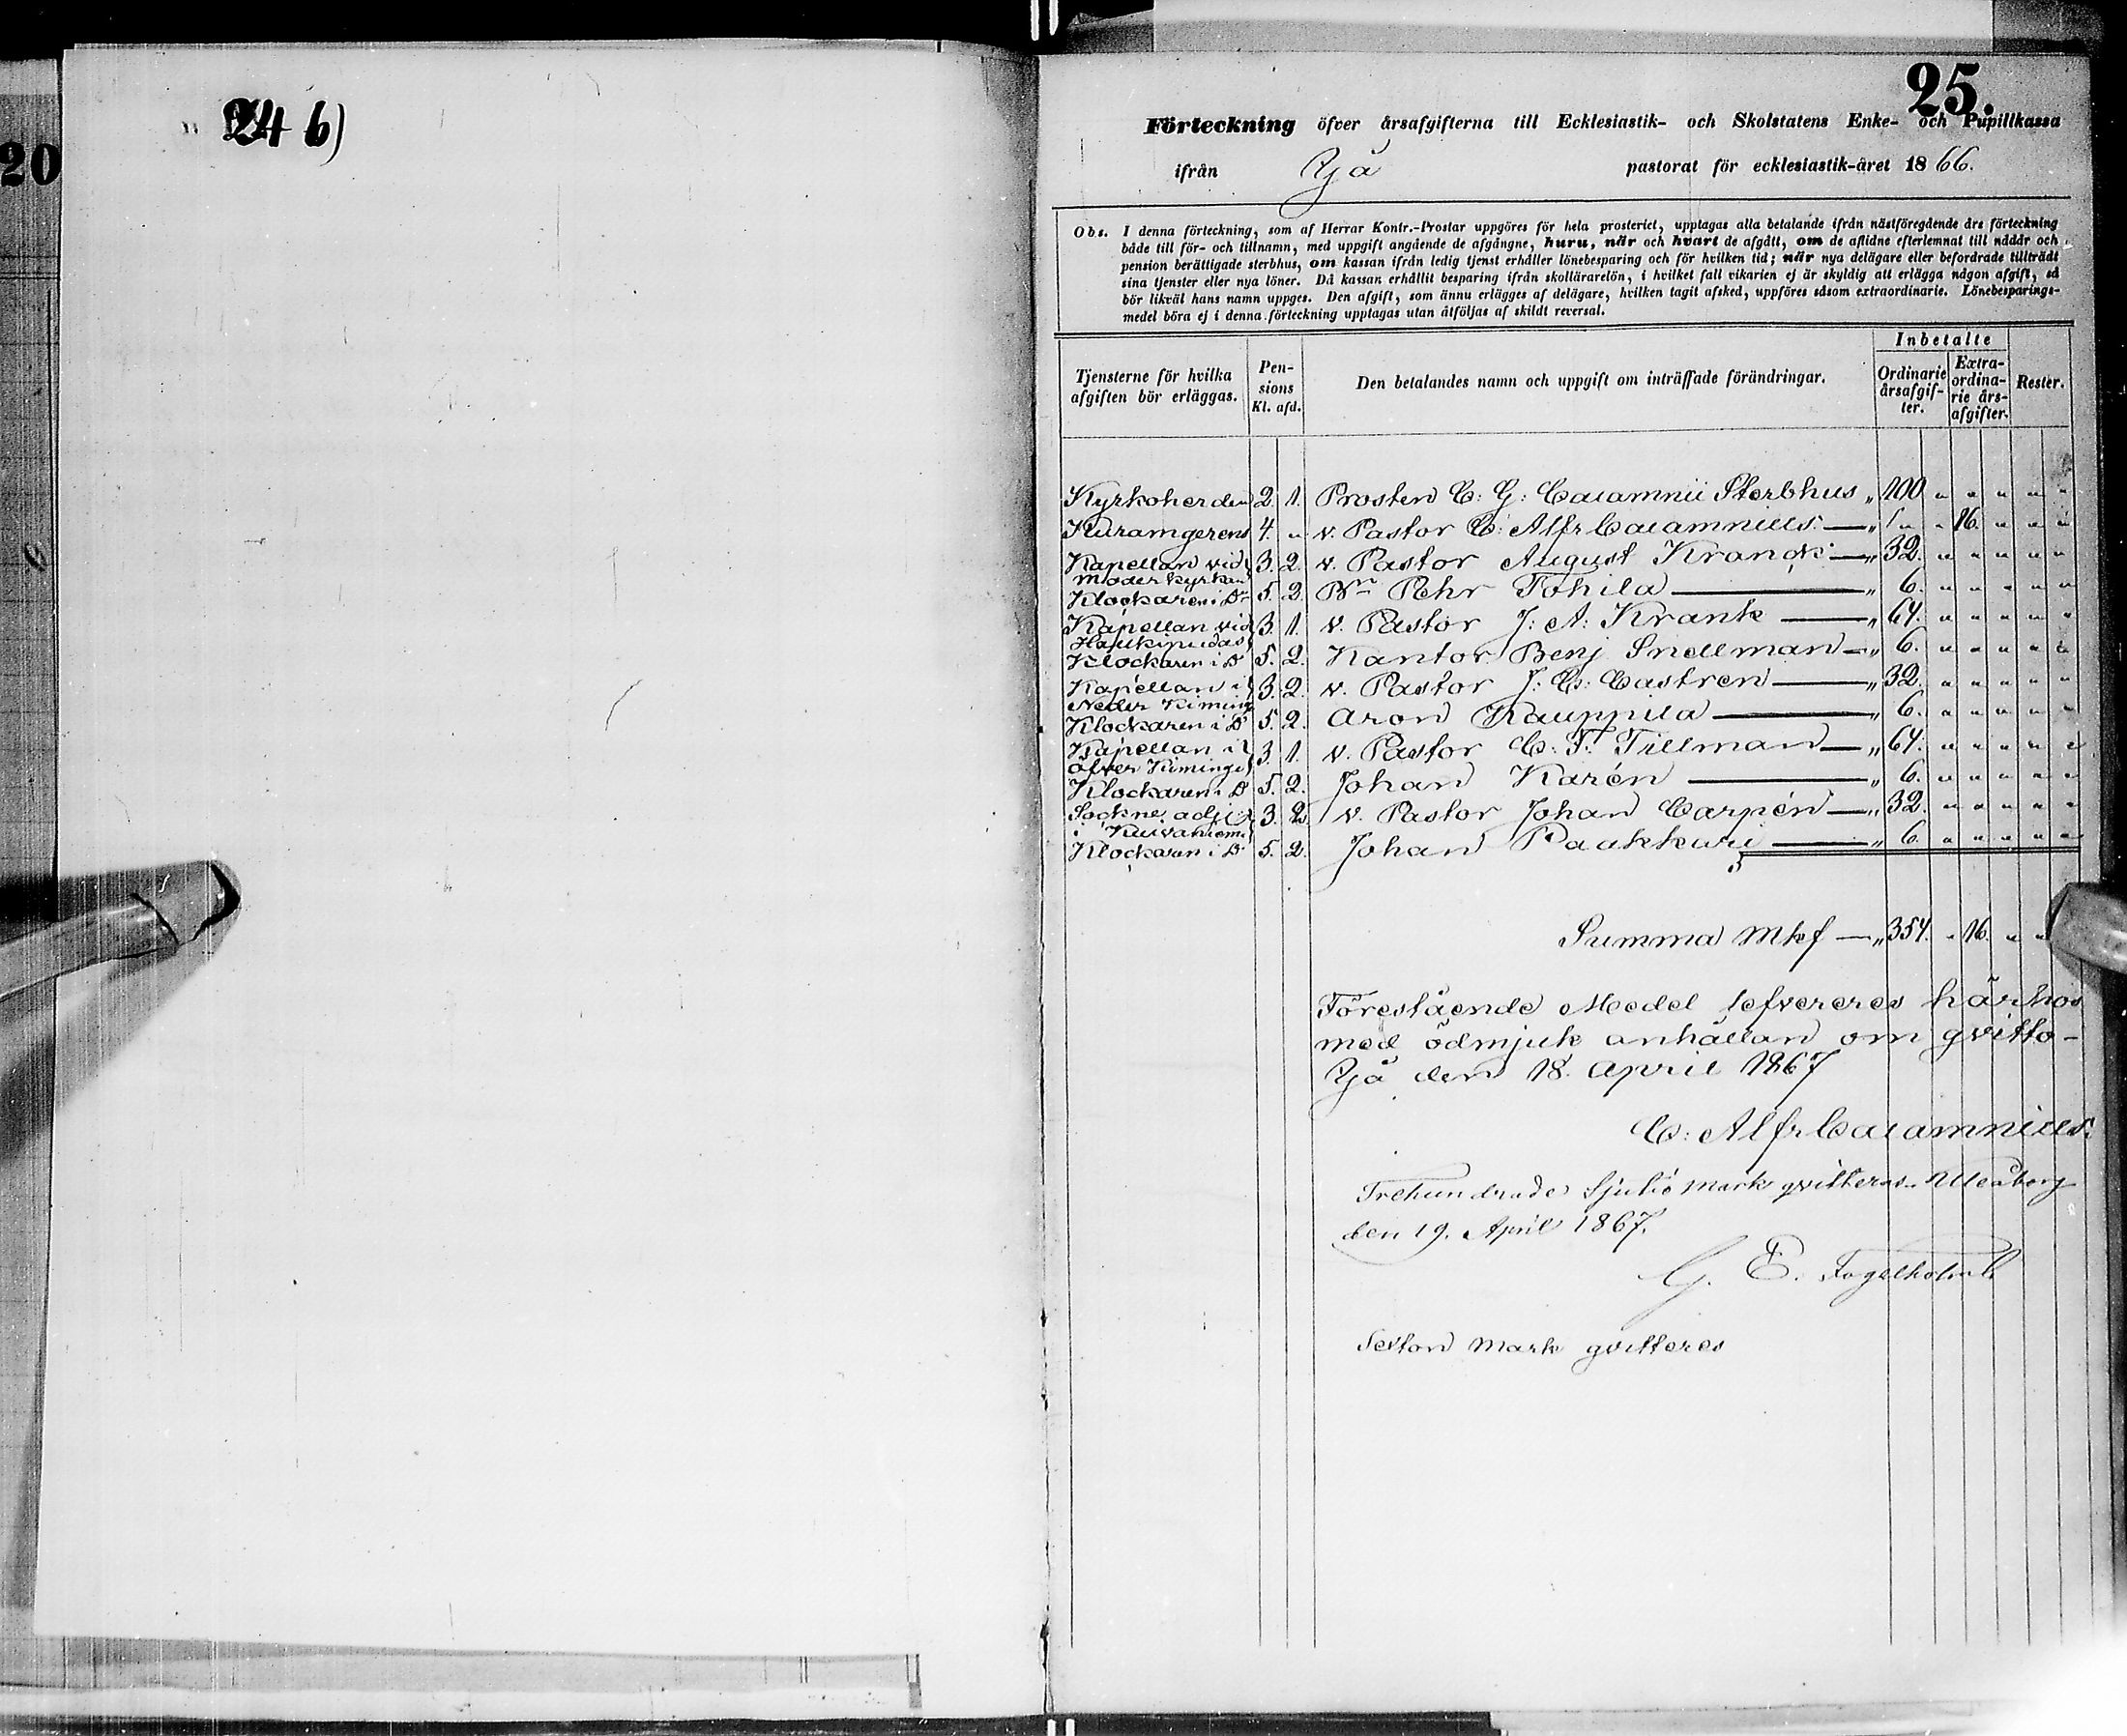 20
24 b)
25.
Förteckning öfver årsafgifterna till Ecklesiastik- och Skolstatens Enke- och Pupillkassa
ifrån Ijå pastorat för ecklesiastik-året 1866.
Obs. I denna förteckning, som af Herrar Kontr.-Prostar uppgöres för hela prosteriet, upptagas alla betalande ifrån nästföregående års förteckning
både till för- och tillnamn, med uppgift angående de afgångne, huru, när och hvart de afgått, om de aflidne efterlemnat till nådår och
pension berättigade sterbhus, om kassan ifrån ledig tjenst erhåller lönebesparing och för hvilken tid; när nya delägare eller befordrade tillträdt
sina tjenster eller nya löner. Då kassan erhållit besparing ifrån skollärarelön, i hvilket fall vikarien ej är skyldig att erlägga någon afgift, så
bör likväl hans namn uppges. Den afgift, som ännu erlägges af delägare, hvilken tagit afsked, uppföres såsom extraordinarie. Lönebesparings-
medel böra ej i denna förteckning upptagas utan åtföljas af skildt reversal.
Tjensterne för hvilka afgiften bör erläggas. Pensions Kl. afd. Den betalandes namn och uppgift om inträffade förändringar. Inbetalte Ordinarie årsafgifter. Extraordinarie årsafgifter. Rester.
Kyrkoherden 2. 1. Prosten C. G. Calamnii Sterbhus „ 100 „ „ „ „ „
4. „ v. Pastor C. Alfr Calamnius — „ „ „ 16. „ „ „
Kapellan vid 3. 2. v. Pastor August Kranck — „ 32. „ „ „ „ „
moderkyrkan
Klockaren i Do 5. 2. Pehr Tohila — „ 6. „ „ „ „ „
Kapellan vid 3. 1. v. Pastor J. A. Krank — „ 64. „ „ „ „ „
Haukipudas
Klockaren i Do 5. 2. Kantor Benj Snellman — „ 6. „ „ „ „ „
Kapellan i 3. 2. v. Pastor J. C. Castren — „ 32. „ „ „ „ „
Neder Kiminge
Klockaren i Do 5. 2. Aron Kauppila — „ 6. „ „ „ „ „
Kapellan i 3. 1. v. Pastor C. F. Tillman — „ 64. „ „ „ „ „
öfver Kiminge
Klockaren i Do 5. 2. Johan Karén — „ 6. „ „ „ „ „
Sockne adj: 3. 2. v. Pastor Johan Carpén — „ 32. „ „ „ „ „
i Kuivaniemi
Klockaren i Do 5. 2. Johan Paakkari — „ 6. „ „ „ „ „
Summa Mkf — „ 354. „ 16. „ „
Förestående Medel lefvereres härhos
med ödmjuk anhållan om gvitto-
Ijå den 18. April 1867
C. Alfr Calamnius.
Trehundrade Sjutio mark gvitteras. Uleåborg
den 19. April 1867.
G. E. Fogelholm
Sexton mark gvitteres